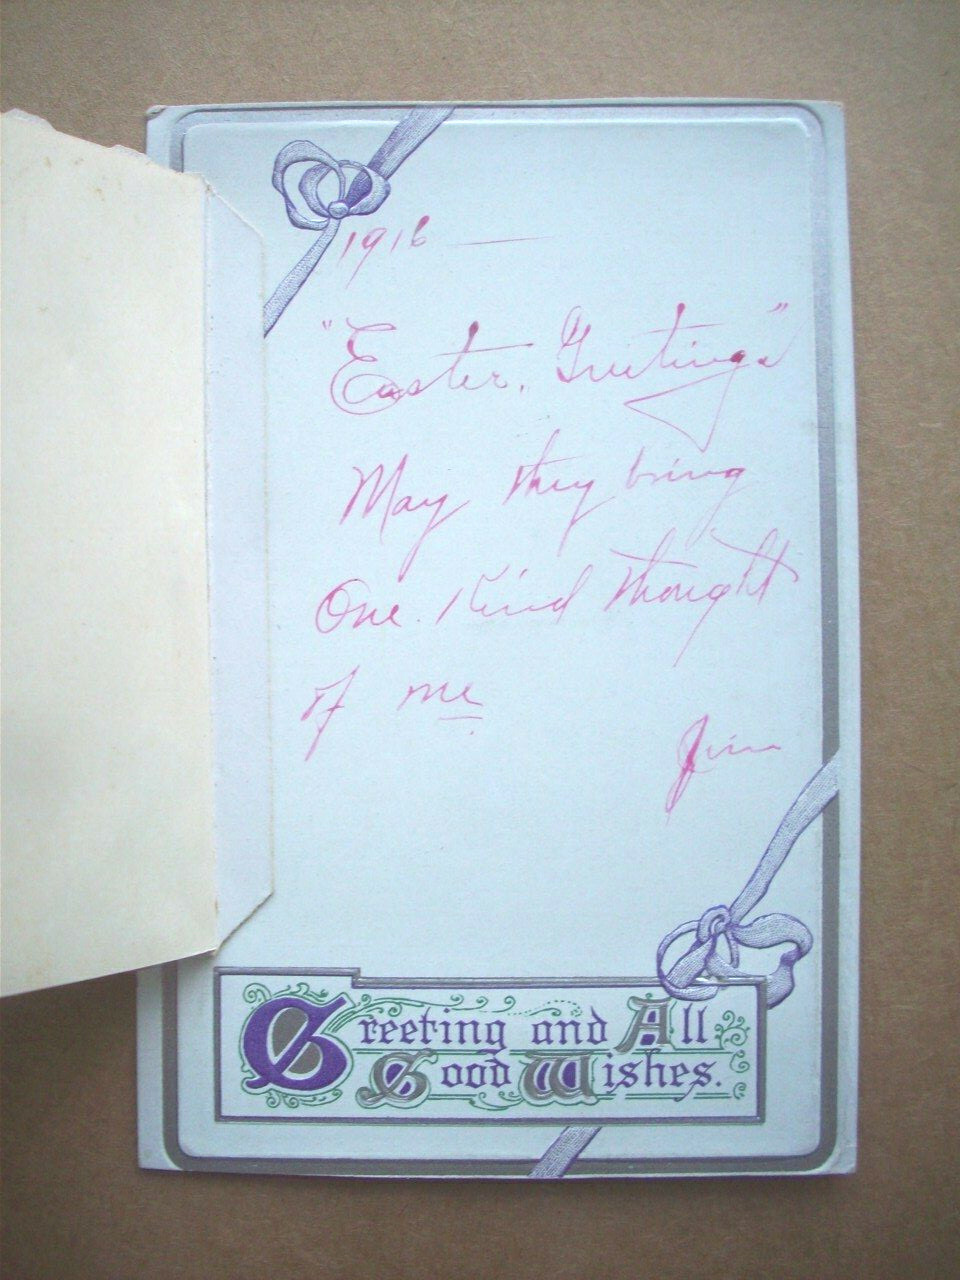 1916 —
"Easter Greetings"
May they bring
One Kind thought
of me
Jim
Greeting and All
Good Wishes.